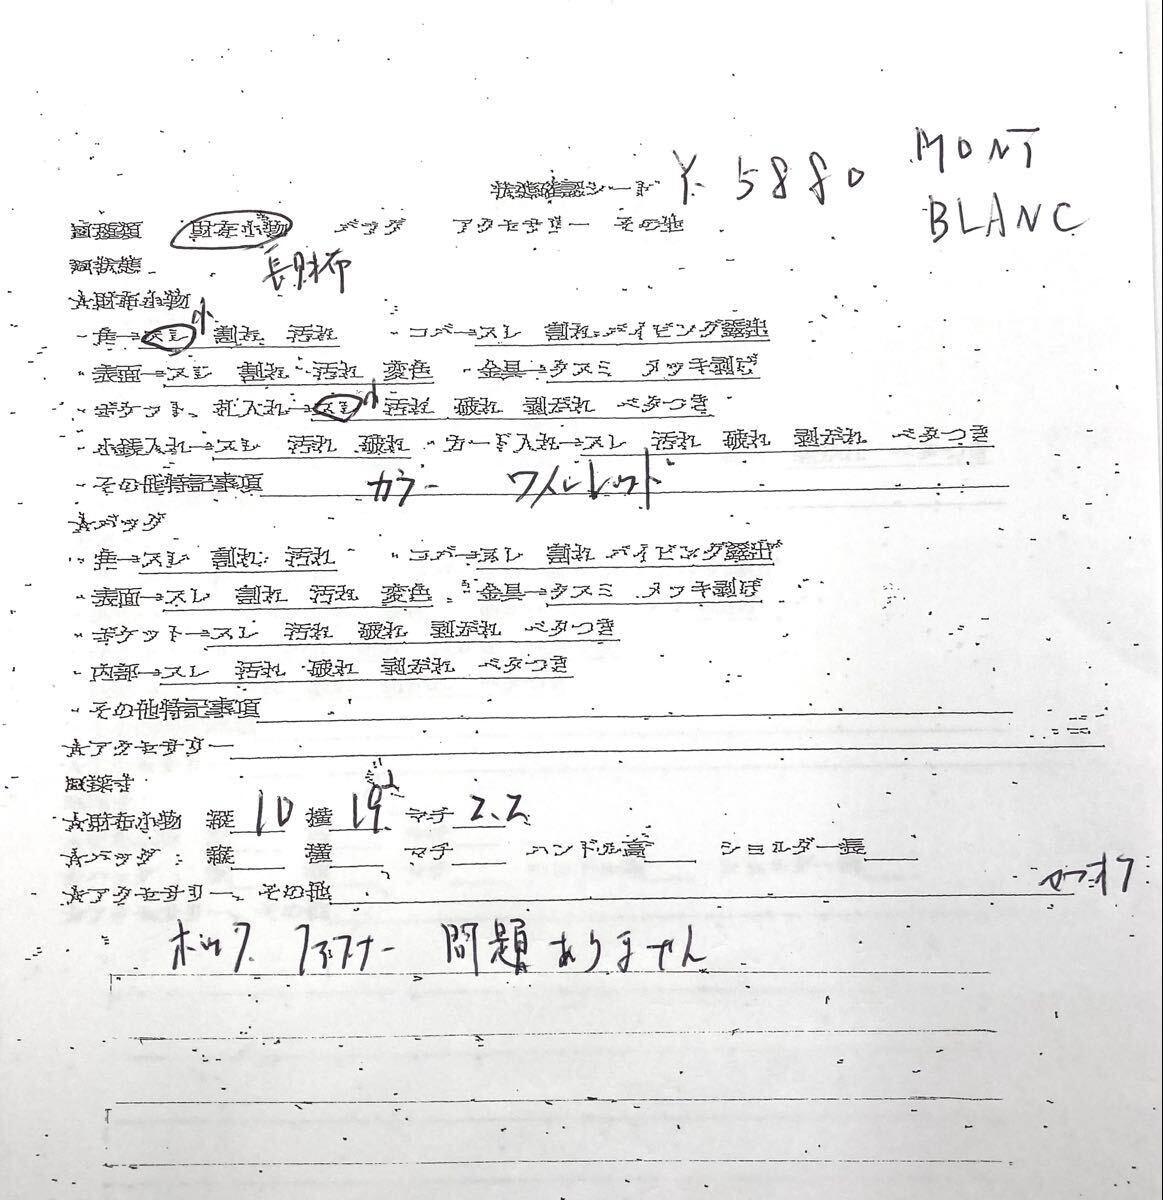 状態確認シート ¥. 5880 MONT BLANC
□種類 財布小物 バッグ アクセサリー その他
□状態 長財布
☆財布小物
・角→スレ 小 割れ 汚れ ・コバ→スレ 割れ パイピング露出
・表面→スレ 割れ 汚れ 変色 ・金具→クスミ メッキ剥げ
・ポケット、札入れ→スレ 小 汚れ 破れ 剥がれ ベタつき
・小銭入れ→スレ 汚れ 破れ ・カード入れ→スレ 汚れ 破れ 剥がれ ベタつき
・その他特記事項 カラー ワインレッド
☆バッグ
・角→スレ 割れ 汚れ ・コバ→スレ 割れ パイピング露出
・表面→スレ 割れ 汚れ 変色 ・金具→クスミ メッキ剥げ
・ポケット→スレ 汚れ 破れ 剥がれ ベタつき
・内部→スレ 汚れ 破れ 剥がれ ベタつき
・その他特記事項
☆アクセサリー
□採寸
☆財布小物 縦 10 横 19 マチ 2.2
☆バッグ 縦 横 マチ ハンドル高 ショルダー長
☆アクセサリー、その他
ホック ファスナー 問題ありません